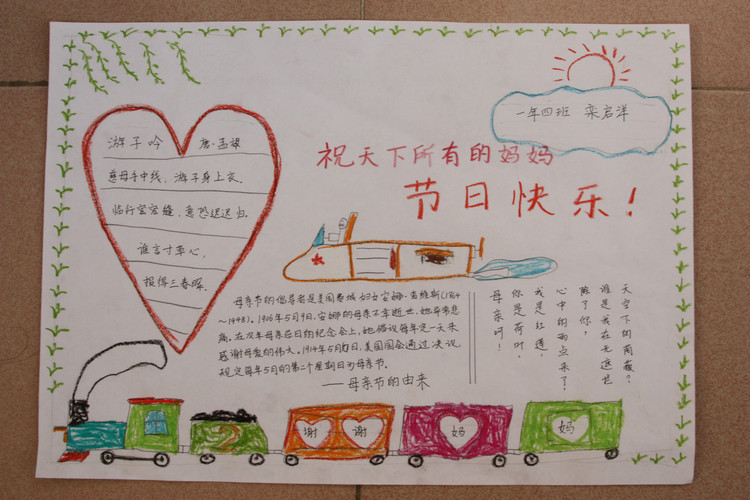 一年四班 栾启洋
祝天下所有的妈妈
节日快乐!
游子吟 唐·孟郊
慈母手中线、游子身上衣.
临行密密缝、意恐迟迟归.
谁言寸草心,
报得三春晖.
母亲节的倡导者是美国费城妇女安娜·贾维斯(1864
~1948). 1906年5月9日,安娜的母亲不幸逝世,她非常悲
痛。在次年母亲忌日的纪念会上,她倡议每年定一天来
感谢母爱的伟大。1914年5月,美国国会通过决议
规定每年5月的第二个星期日为母亲节.
——母亲节的由来
天空下的荫蔽?
谁是我在无遮拦
除了你,
心中的雨点来了,
我是红莲,
你是荷叶,
母亲呵!
谢 谢 妈 妈